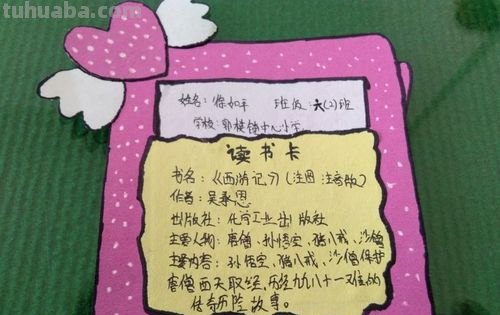 tuhuaba.com
姓名：徐如平 班级：六(2)班
学校：郭楼镇中心小学
读书卡
书名：《西游记》(注图 注音版)
作者：吴承恩
出版社：化学工业出版社
主要人物：唐僧、孙悟空、猪八戒、沙僧
主要内容：孙悟空、猪八戒、沙僧保护
唐僧西天取经，历经九九八十一难的
传奇历险故事。